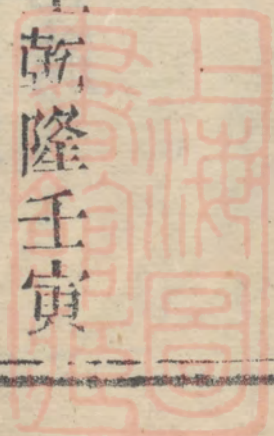 乾隆壬寅
上海圖
書館藏